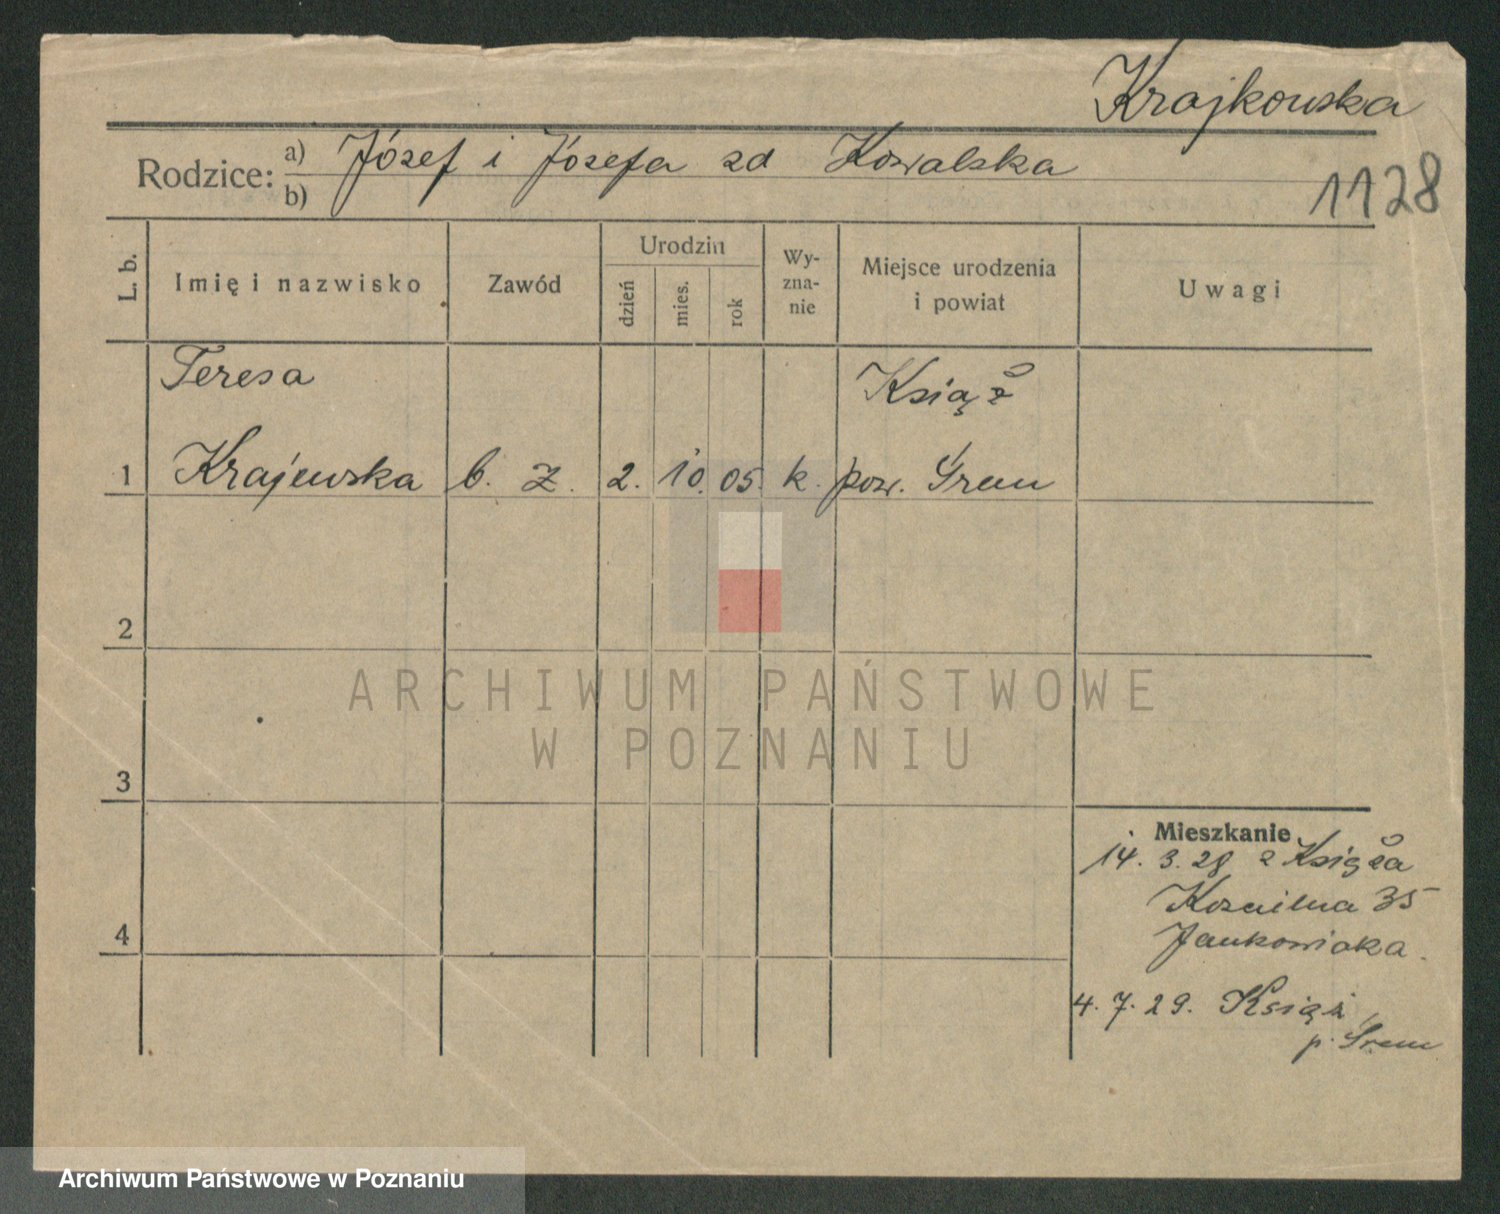 Krajkowska
Rodzice: a) Józef i Józefa zd Kowalska
b)
1128
L. b. Imię i nazwisko Zawód Urodzin dzień mies. rok Wyznanie Miejsce urodzenia i powiat Uwagi
Teresa Książ
1 Krajewska b. z. 2. 10. 05. k. pow. Śrem
2
3
4
Mieszkanie
14. 3. 28 z Książa
35
Jankowiaka.
4. 7. 29. Książ
p. Śrem
ARCHIWUM PAŃSTWOWE
W POZNANIU
Archiwum Państwowe w Poznaniu